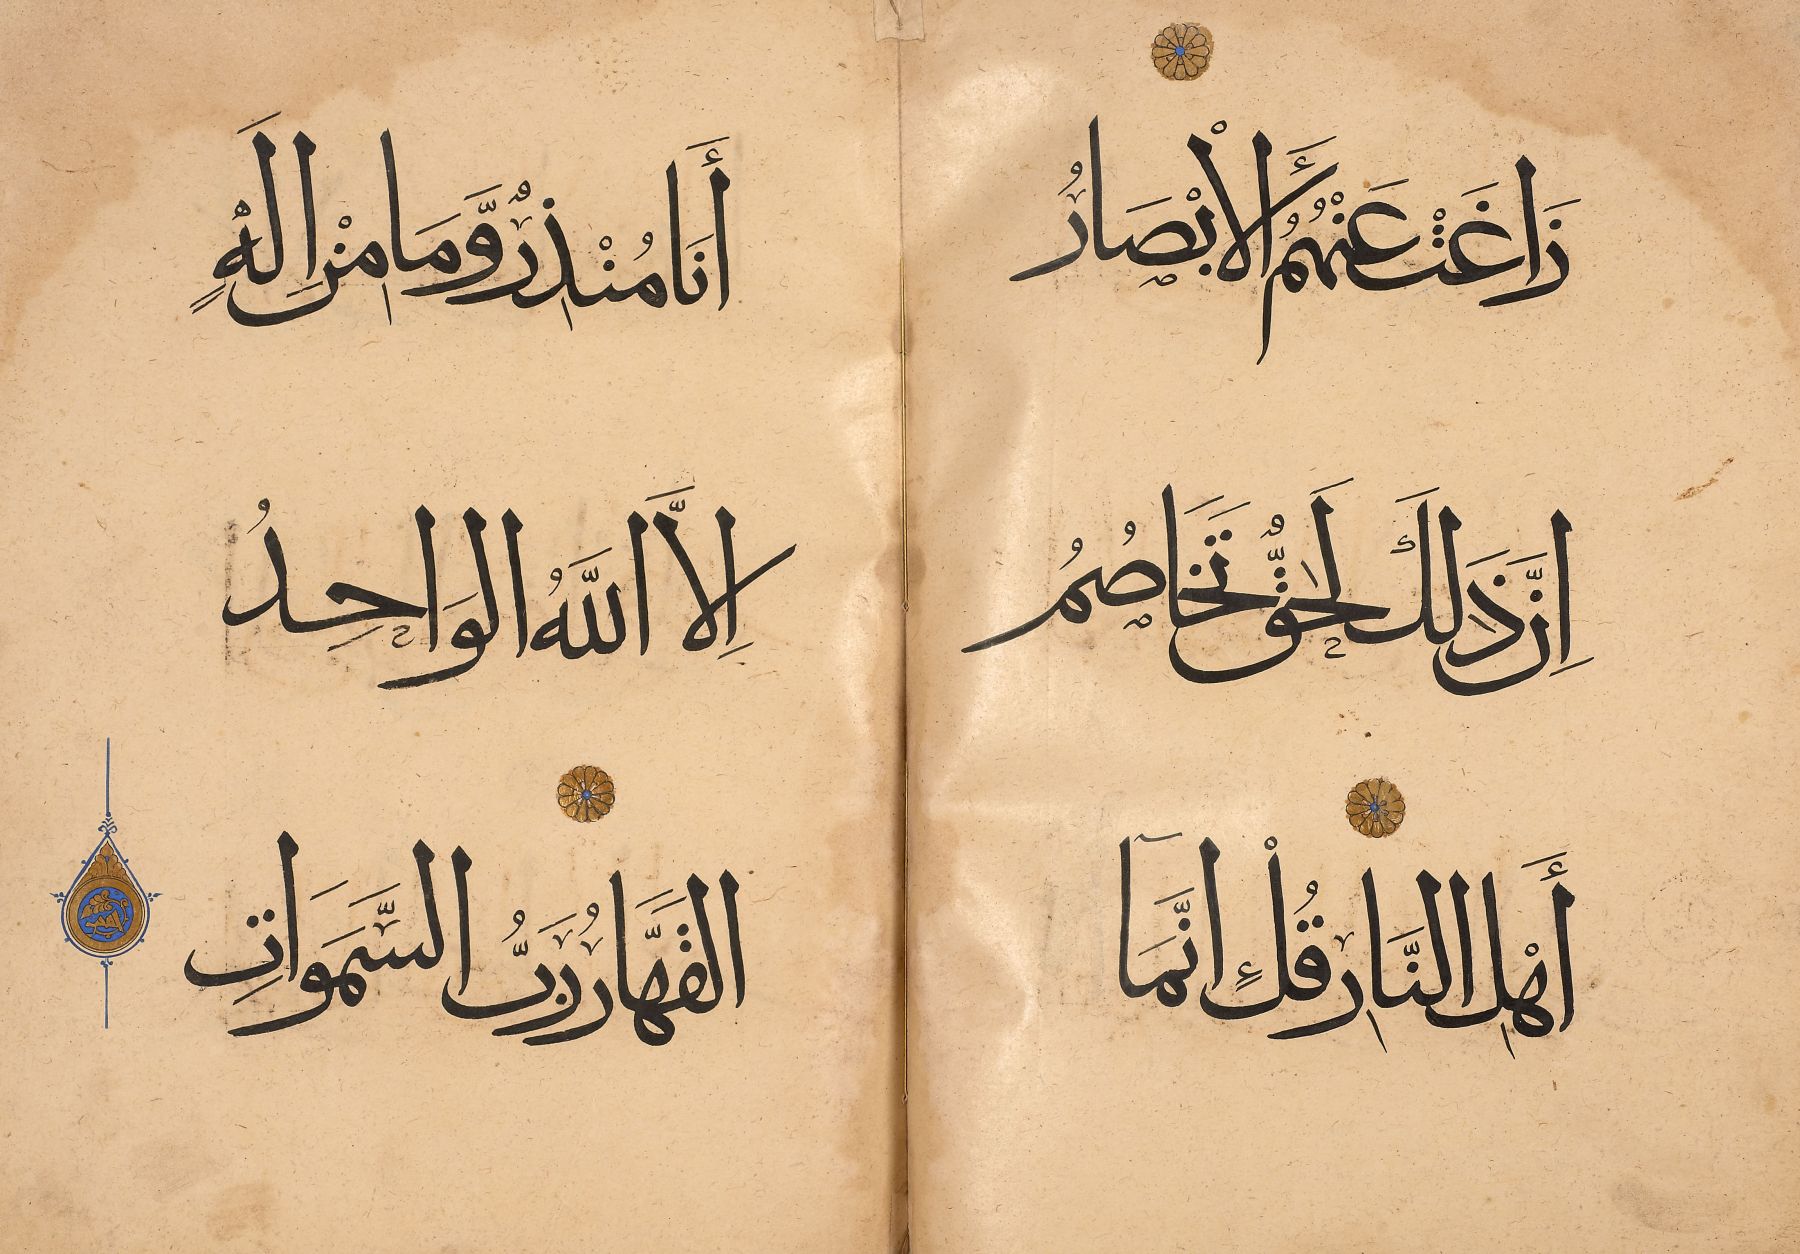 زَاغَتْ عَنْهُمُ الْأَبْصَارُ
اِنَّ ذَلِكَ لَحَقٌّ تَخَاصُمُ
أَهْلِ النَّارِ قُلْ اِنَّمَآ
أَنَا مُنْذِرٌ وَّمَا مِنْ اِلَهٍ
اِلَّا اللَّهُ الْوَاحِدُ
الْقَهَّارُ رَبُّ السَّمَوَاتِ